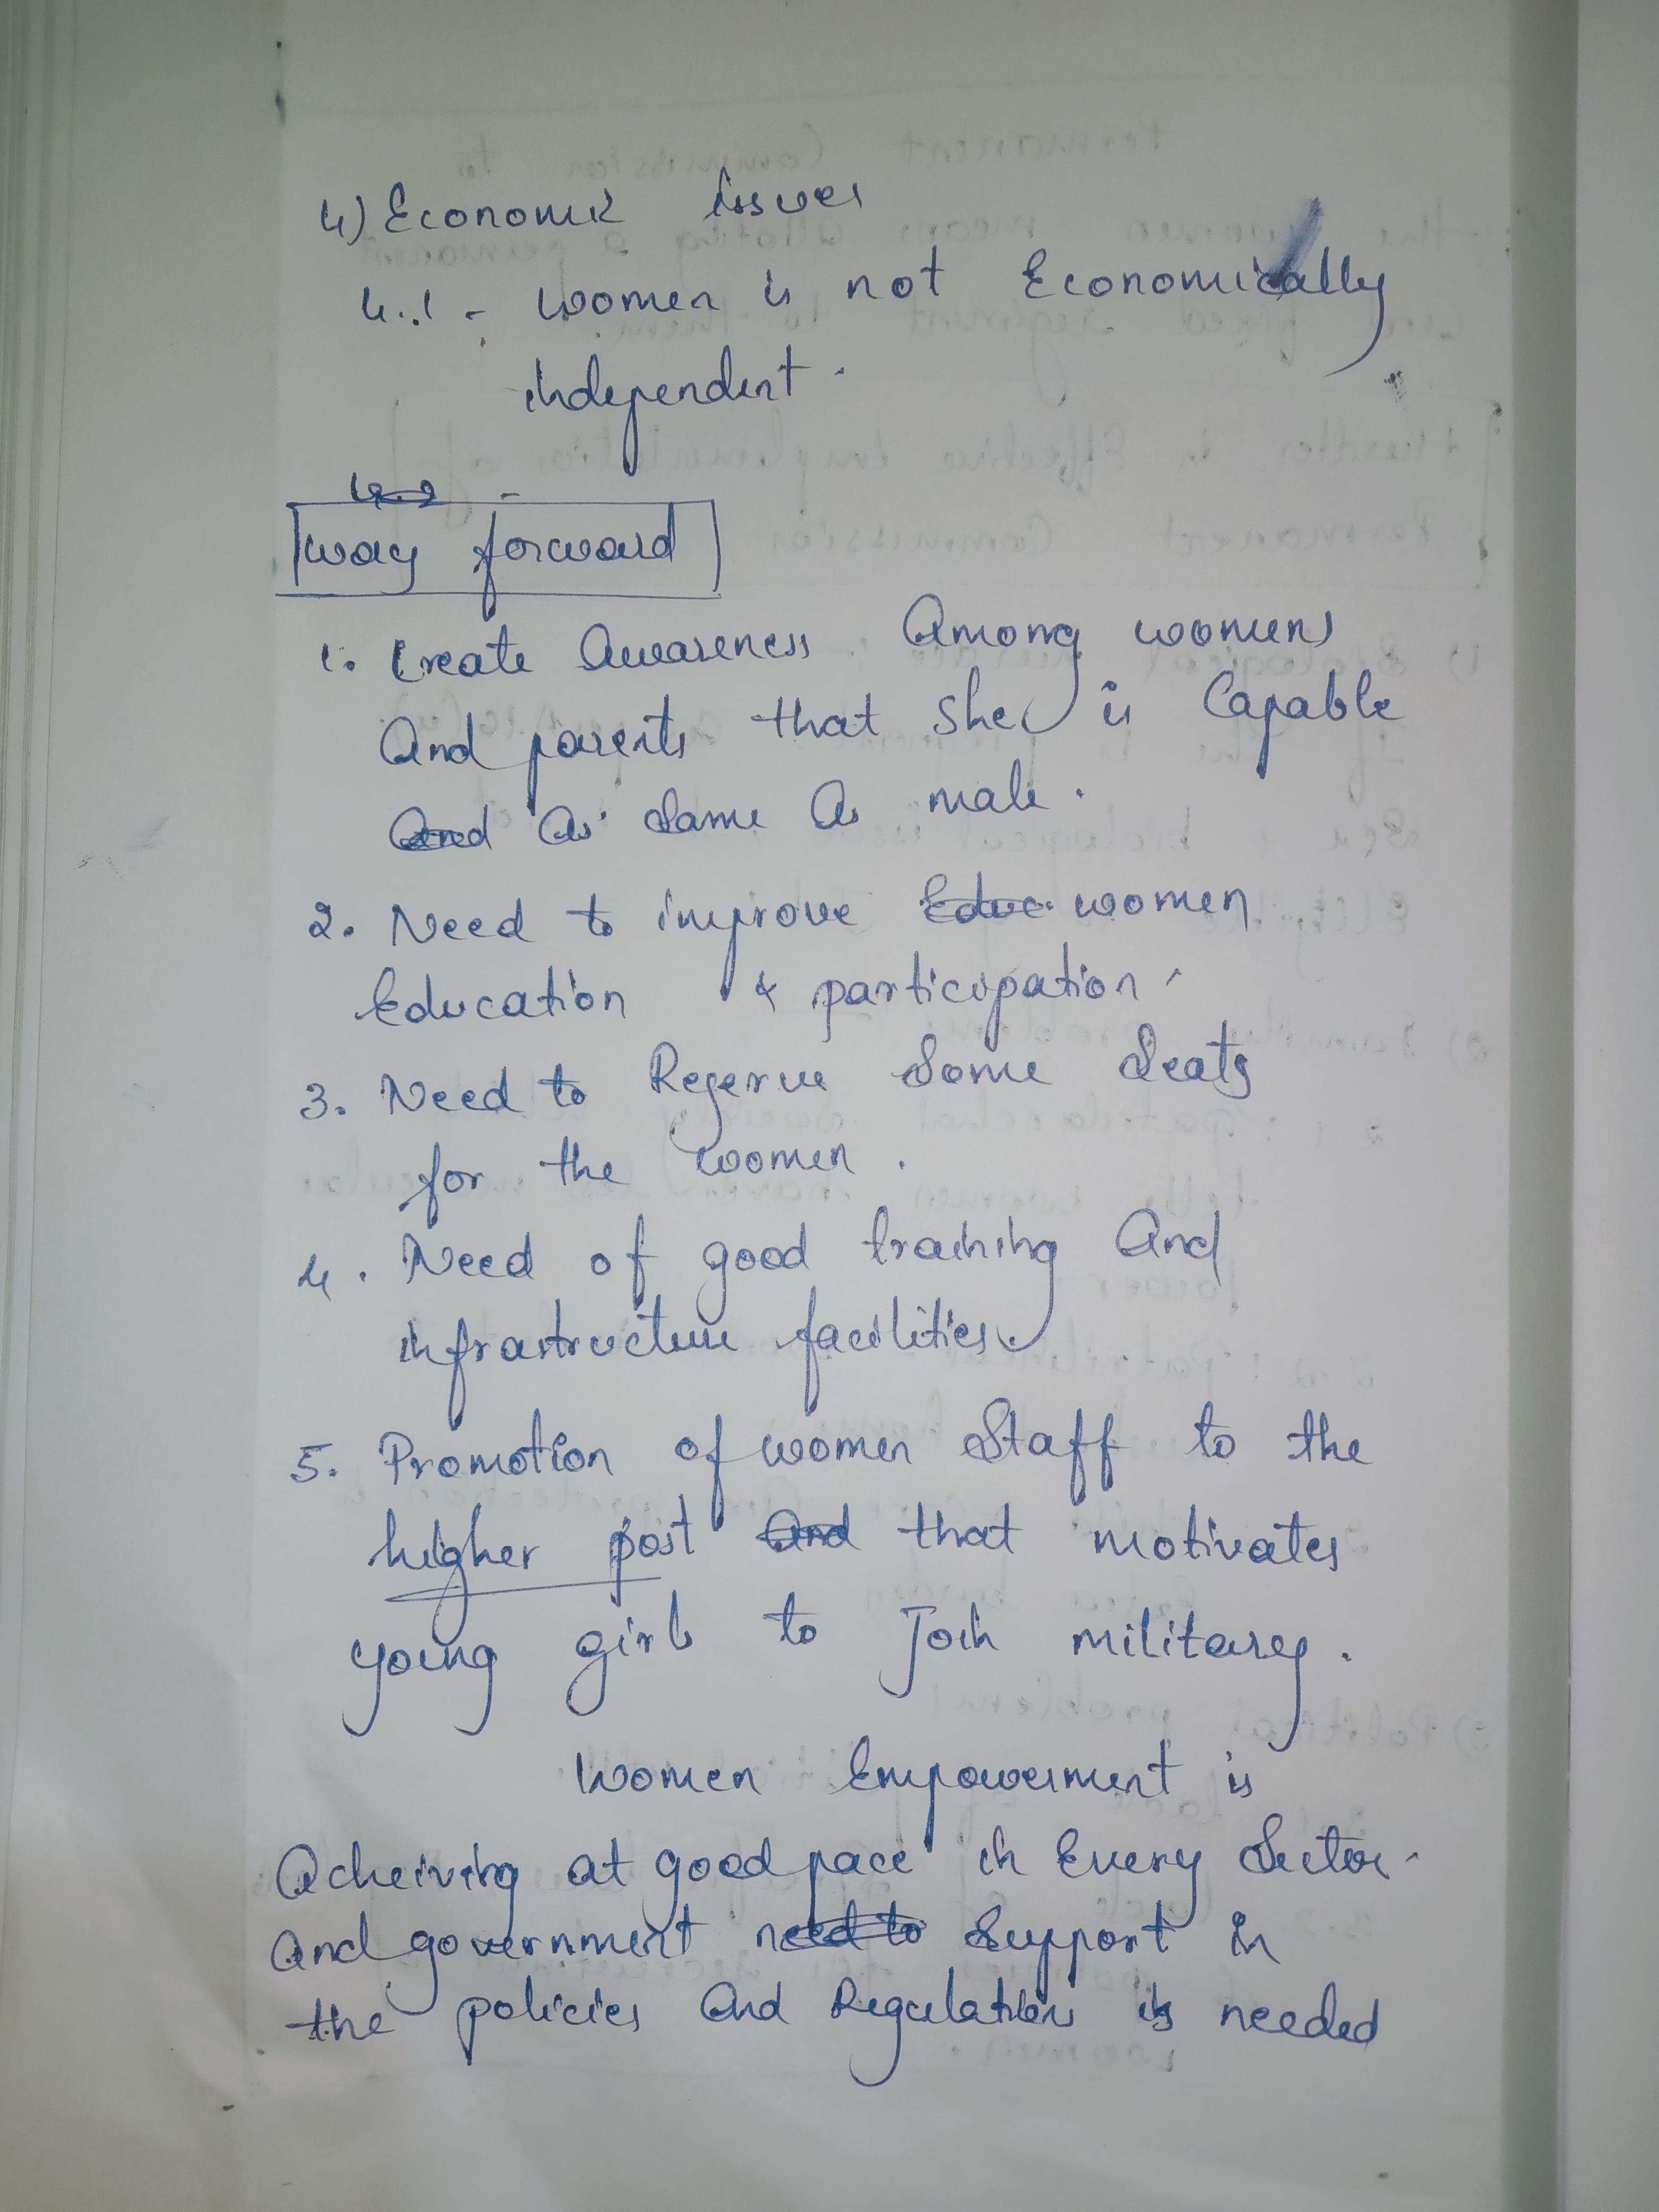 4) Economic issues
4.1 - women is not Economically
independent.
4.2 -
way forward
1. Create Awareness Among womens
And parents that she is Capable
And As same As male.
2. Need to improve Educ. women
Education & participation.
3. Need to Reserve Some Seats
for the women.
4. Need of good training And
infrastructure facilities.
5. Promotion of women Staff to the
higher post And that motivates
young girls to Join military.
Women Empowerment is
Acheiving at good pace in Every Sector.
And government need to Support in
the policies and Regulation is needed